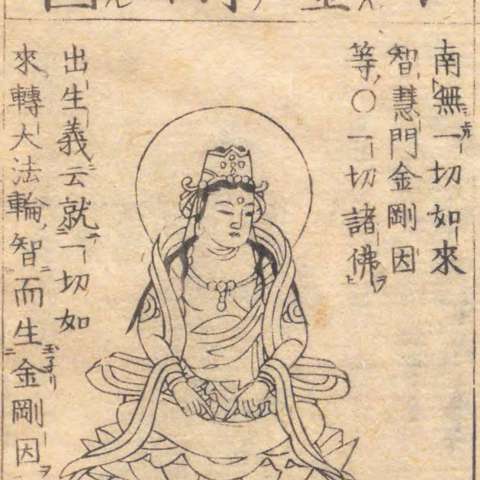 南無一切如來
智慧門金剛因
等〇一切諸佛
出生義云就一切如
來轉大法輪智而生金剛因